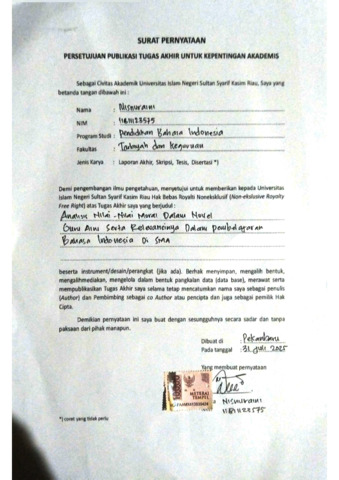 SURAT PERNYATAAN
PERSETUJUAN PUBLIKASI TUGAS AKHIR UNTUK KEPENTINGAN AKADEMIS
Sebagai Civitas Akademik Universitas Islam Negeri Sultan Syarif Kasim Riau, Saya yang
bertanda tangan dibawah ini :
Nama : Nismuraini
NIM :
Program Studi : Pendidikan Bahasa Indonesia
Fakultas : Tarbiyah dan Keguruan
Jenis Karya : Laporan Akhir, Skripsi, Tesis, Disertasi *)
Demi pengembangan ilmu pengetahuan, menyetujui untuk memberikan kepada Universitas
Islam Negeri Sultan Syarif Kasim Riau Hak Bebas Royalti Noneksklusif (Non-eksklusive Royalty
Free Right) atas Tugas Akhir saya yang berjudul :
Analisis Nilai-Nilai Moral Dalam Novel
Guru Aini Serta Relevansinya Dalam Pembelajaran
Bahasa Indonesia Di SMA
beserta instrument/desain/perangkat (jika ada). Berhak menyimpan, mengalih bentuk,
mengalihmediakan, mengelola dalam bentuk pangkalan data (data base), merawat serta
mempublikasikan Tugas Akhir saya selama tetap mencatumkan nama saya sebagai penulis
(Author) dan Pembimbing sebagai co Author atau pencipta dan juga sebagai pemilik Hak
Cipta.
Demikian pernyataan ini saya buat dengan sesungguhnya secara sadar dan tanpa
paksaan dari pihak manapun.
Dibuat di : Pekanbaru
Pada tanggal : 31 Juli 2025
Yang membuat pernyataan
METERAI
TEMPEL
*) coret yang tidak perlu